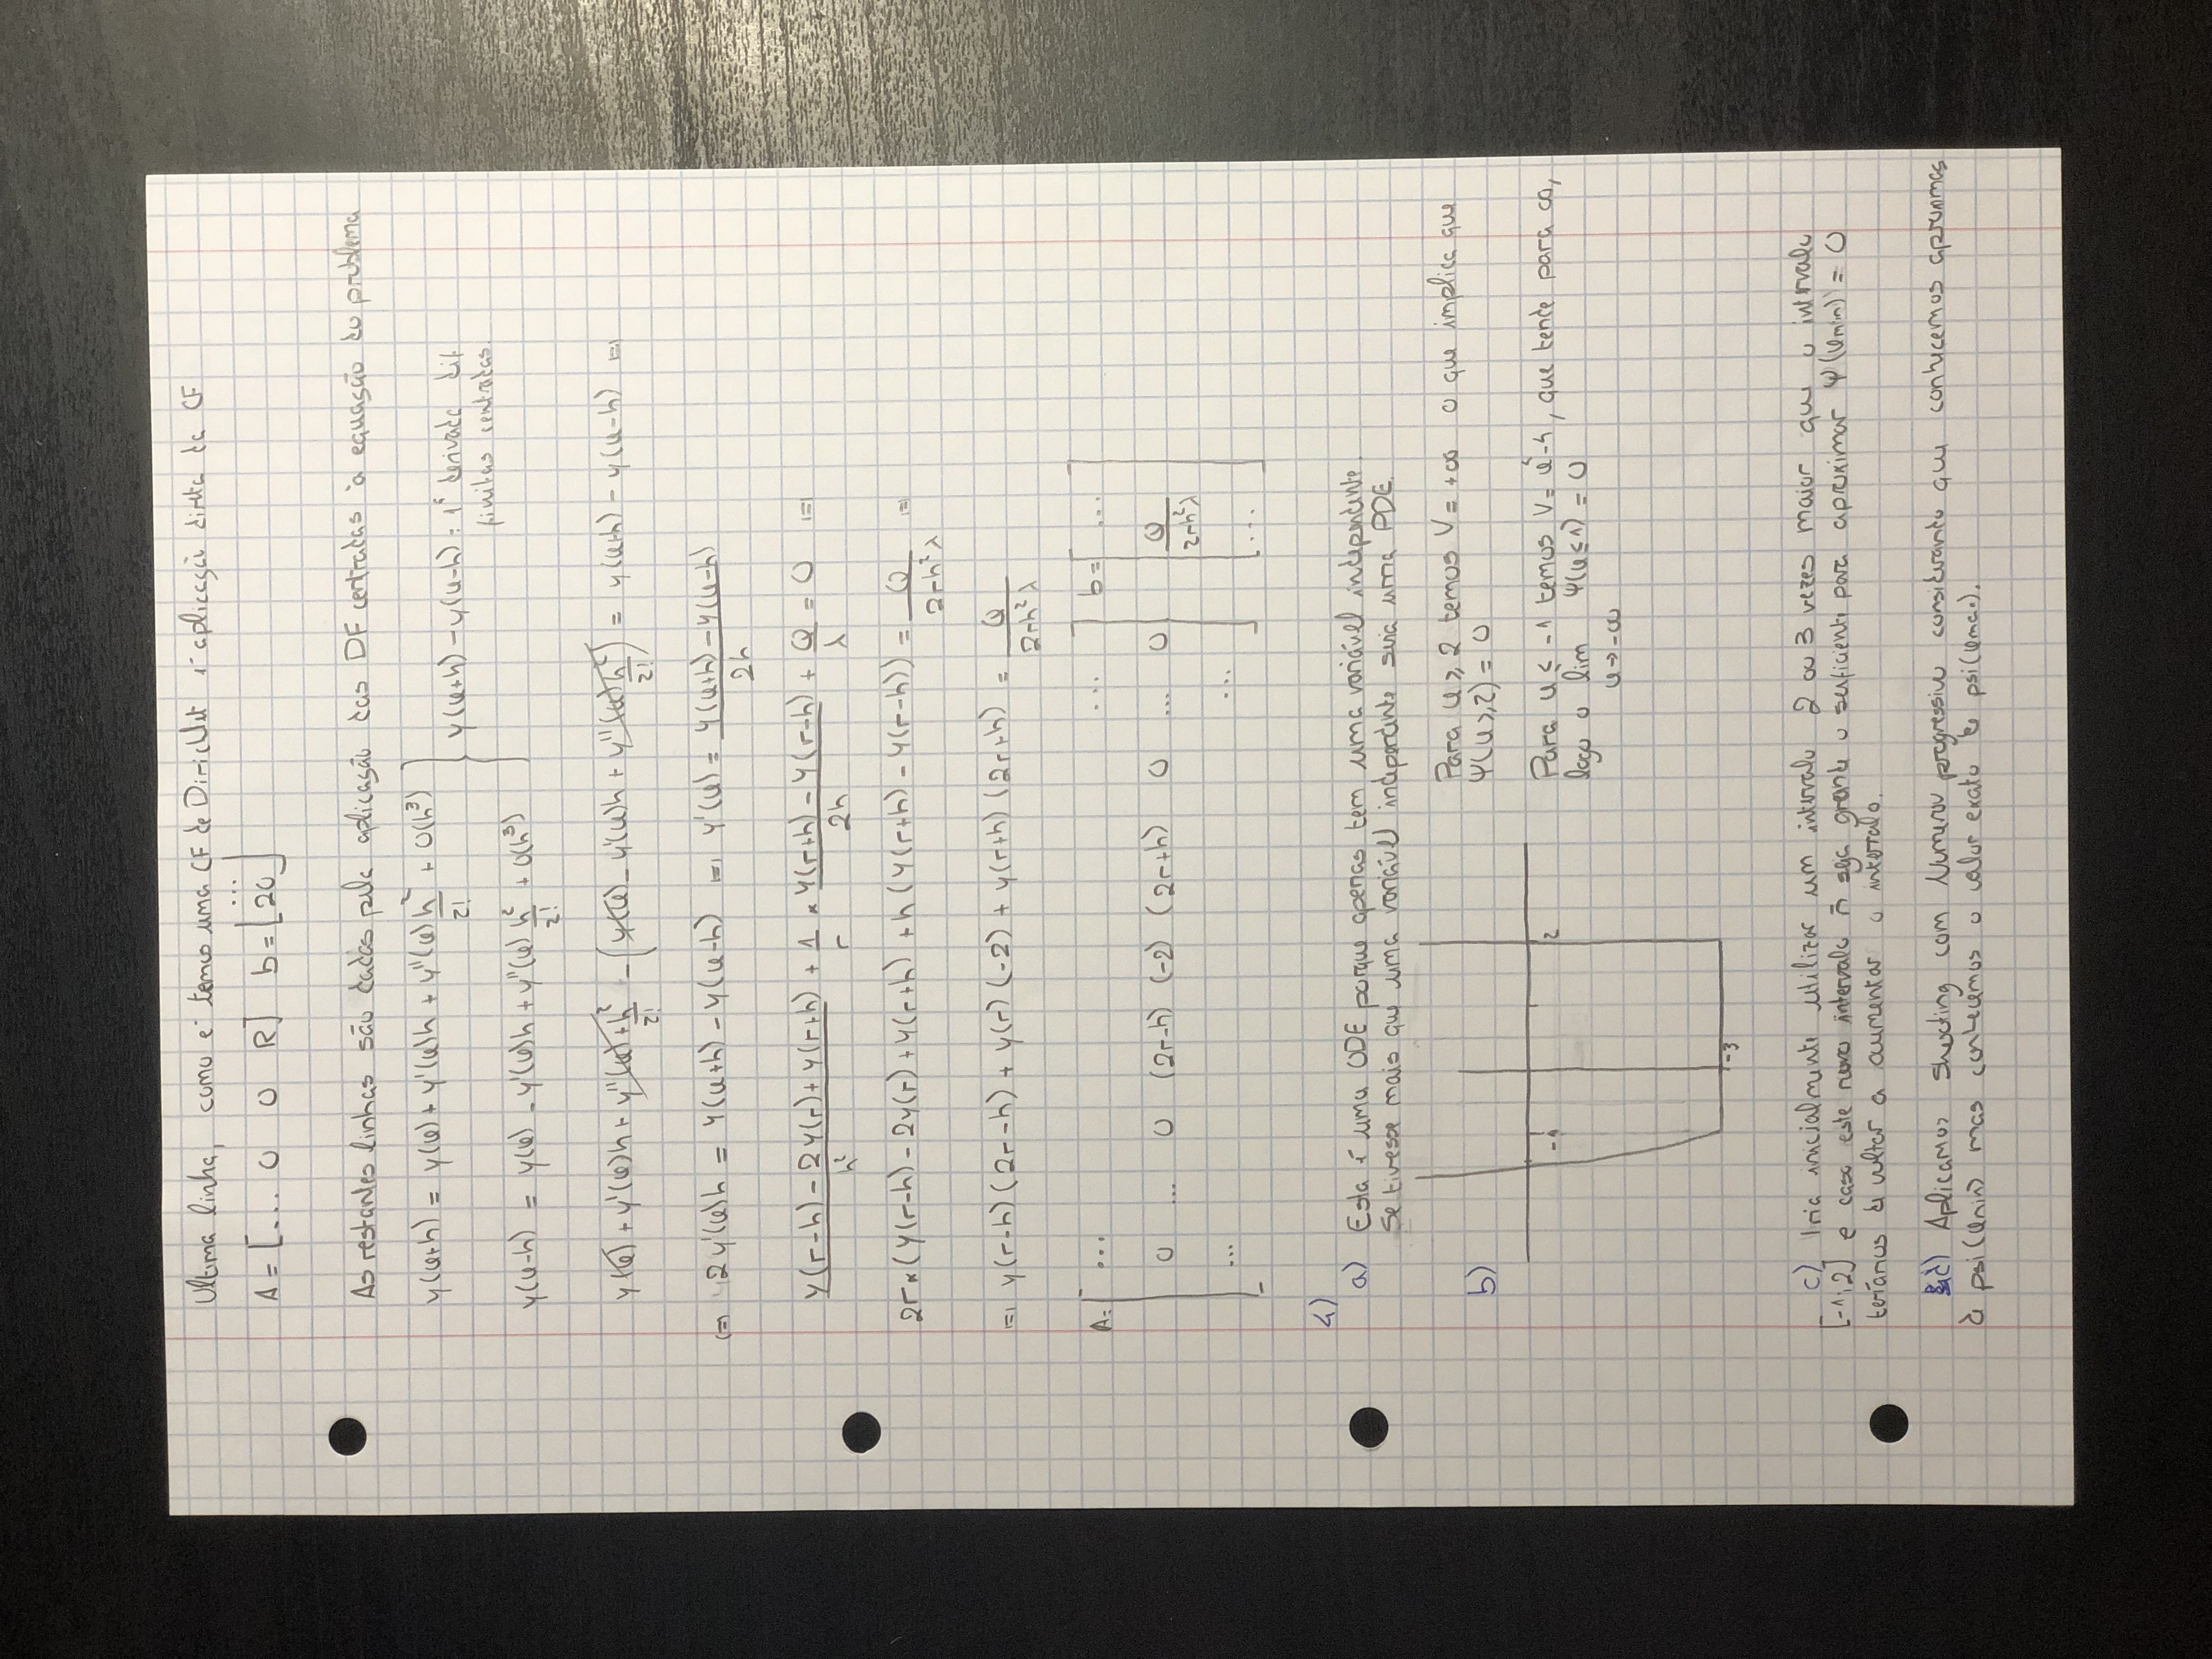 Ultima linha, como é temos uma CF de Dirichlet é aplicação direta da CF
A = [... 0 0 R] b = [... 20]
As restantes linhas são dadas pela aplicação das DF centradas à equação do problema
y(x+h) = y(x) + y'(x)h + y''(x) h²/2! + O(h³)
y(x+h) - y(x-h) = 1ª derivada dif
finitas centradas
y(x-h) = y(x) - y'(x)h + y''(x) h²/2! + O(h³)
y(x) + y'(x)h + y''(x) + h²/2! - (y(x) - y'(x)h + y''(x) h²/2!) = y(x+h) - y(x-h) (=)
(=) 2y'(x)h = y(x+h) - y(x-h) (=) y'(x) = y(x+h) - y(x-h) / 2h
y(r-h) - 2y(r) + y(r+h) / h² + 1/r × y(r+h) - y(r-h) / 2h + Q/λ = 0 (=)
2r × (y(r-h) - 2y(r) + y(r+h) + h (y(r+h) - y(r-h)) = Q / 2rh²λ (=)
(=) y(r-h) (2r-h) + y(r) (-2) + y(r+h) (2r+h) = Q / 2rh²λ
A = [ ... ... ] b = [ ...
0 ... 0 (2r-h) (-2) (2r+h) 0 ... 0 Q / 2rh²λ
... ... ... ]
4)
a) Esta é uma ODE porque apenas tem uma variável independente.
Se tivesse mais que uma variável independente seria uma PDE.
b)
-1 2
-3
Para x ≥ 2 temos V = +∞ o que implica que
Ψ(x ≥ 2) = 0
Para x ≤ -1 temos V = x²-4, que tende para ∞,
logo o lim Ψ(x ≤ 1) = 0
x → -∞
c) Iria inicialmente utilizar um intervalo 2 ou 3 vezes maior que o intervalo
[-1,2] e caso este novo intervalo ñ seja grande o suficiente para aproximar Ψ(xmin) = 0
teríamos de voltar a aumentar o intervalo.
d) Aplicamos Shooting com Numerov progressivo considerando que conhecemos aproximas
de psi(xmin) mas conhecemos o valor exato de psi(xmax).